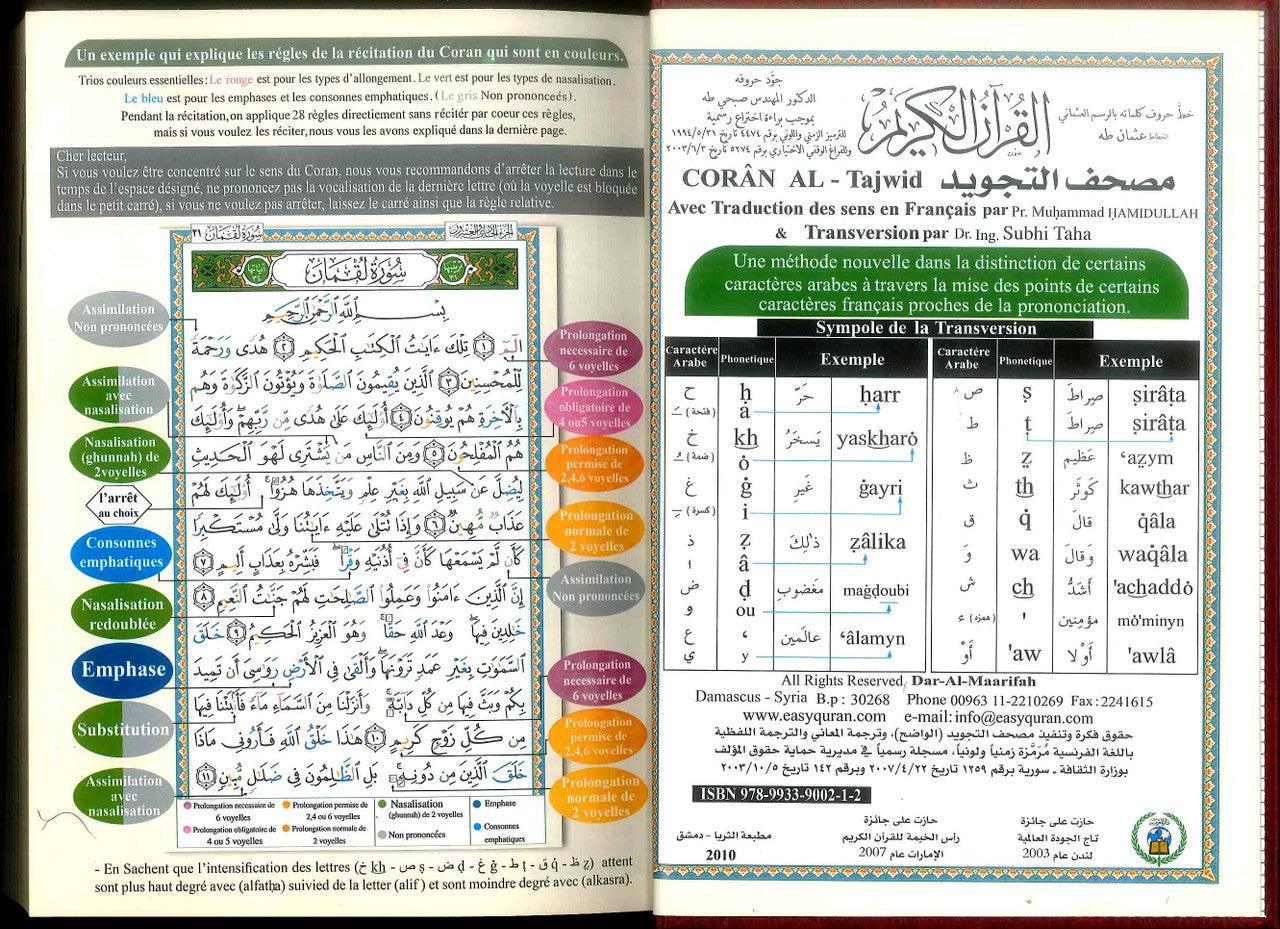 Un exemple qui explique les régles de la récitation du Coran qui sont en couleurs.
Trios couleurs essentielles: Le rouge est pour les types d'allongement. Le vert est pour les types de nasalisation.
Le bleu est pour les emphases et les consonnes emphatiques. (Le gris Non prononceés).
Pendant la récitation,on applique 28 règles directement sans réciter par coeur ces règles,
mais si vous voulez les réciter,nous vous les avons expliqué dans la dernière page.
Cher lecteur,
Si vous voulez être concentré sur le sens du Coran, nous vous recommandons d'arrêter la lecture dans le
temps de l'espace désigné, ne prononcez pas la vocalisation de la dernière lettre (où la voyelle est bloquée
dans le petit carré), si vous ne voulez pas arrêter, laissez le carré ainsi que la règle relative.
سُورَةُ لُقْمَان ٣١
سُورَةُ لُقْمَان
بِسْمِ اللَّهِ الرَّحْمَنِ الرَّحِيمِ
الٓمٓ ١ تِلْكَ ءَايَٰتُ الْكِتَٰبِ الْحَكِيمِ ٢ هُدًى وَرَحْمَةً
لِّلْمُحْسِنِينَ ٣ الَّذِينَ يُقِيمُونَ الصَّلَوٰةَ وَيُؤْتُونَ الزَّكَوٰةَ وَهُم
بِالْأَخِرَةِ هُمْ يُوقِنُونَ ٤ أُوْلَٰٓئِكَ عَلَىٰ هُدًى مِّن رَّبِّهِمْ وَأُوْلَٰٓئِكَ
هُمُ الْمُفْلِحُونَ ٥ وَمِنَ النَّاسِ مَن يَشْتَرِى لَهْوَ الْحَدِيثِ
لِيُضِلَّ عَن سَبِيلِ اللَّهِ بِغَيْرِ عِلْمٍ وَيَتَّخِذَهَا هُزُوًا أُوْلَٰٓئِكَ لَهُمْ
عَذَابٌ مُّهِينٌ ٦ وَإِذَا تُتْلَىٰ عَلَيْهِ ءَايَٰتُنَا وَلَّىٰ مُسْتَكْبِرًا
كَأَن لَّمْ يَسْمَعْهَا كَأَنَّ فِىٓ أُذُنَيْهِ وَقْرًا فَبَشِّرْهُ بِعَذَابٍ أَلِيمٍ ٧
إِنَّ الَّذِينَ ءَامَنُوا وَعَمِلُوا الصَّٰلِحَٰتِ لَهُمْ جَنَّٰتُ النَّعِيمِ ٨
خَٰلِدِينَ فِيهَا وَعْدَ اللَّهِ حَقًّا وَهُوَ الْعَزِيزُ الْحَكِيمُ ٩ خَلَقَ
السَّمَٰوَٰتِ بِغَيْرِ عَمَدٍ تَرَوْنَهَا وَأَلْقَىٰ فِى الْأَرْضِ رَوَٰسِىَ أَن تَمِيدَ
بِكُمْ وَبَثَّ فِيهَا مِن كُلِّ دَآبَّةٍ وَأَنزَلْنَا مِنَ السَّمَآءِ مَآءً فَأَنۢبَتْنَا فِيهَا
مِن كُلِّ زَوْجٍ كَرِيمٍ ١٠ هَٰذَا خَلْقُ اللَّهِ فَأَرُونِى مَاذَا
خَلَقَ الَّذِينَ مِن دُونِهِ بَلِ الظَّٰلِمُونَ فِى ضَلَٰلٍ مُّبِينٍ ١١
Assimilation
Non prononcées
Assimilation
avec
nasalisation
Nasalisation
(ghunnah) de
2voyelles
l'arrêt
au choix
Consonnes
emphatiques
Nasalisation
redoublée
Emphase
Substitution
Assimilation
avec
nasalisation
Prolongation
necessaire de
6 voyelles
Prolongation
obligatoire de
4 ou5 voyelles
Prolongation
permise de
2,4,6 voyelles
Prolongation
normale de
2 voyelles
Assimilation
Non prononcées
Prolongation
necessaire de
6 voyelles
Prolongation
permise de
2,4,6 voyelles
Prolongation
normale de
2 voyelles
Prolongation necessaire de
6 voyelles
Prolongation permise de
2,4 ou 6 voyelles
Nasalisation
(ghunnah) de 2 voyelles
Emphase
Prolongation obligatoire de
4 ou 5 voyelles
Prolongation normale de
2 voyelles
Non prononcées
Consonnes
emphatiques
- En Sachent que l'intensification des lettres (خ kh - ص ṣ - ض ḍ - غ ġ - ط ṭ - ق q̇ - ظ ẓ) attent
sont plus haut degré avec (alfatḥa) suivied de la letter (alif) et sont moindre degré avec (alkasra).
جوَّد حروفه
الدكتور المهندس صبحي طه
بموجب براءة اختراع رسمية
للترميز الزمني واللوني برقم ٤٤٧٤ تاريخ ١٩٩٤/٥/٣١
وللفراغ الوقفي الاختياري برقم ٥٢٧٤ تاريخ ٢٠٠٣/٦/٣
القرآن الكريم
خطَّ حروف كلماته بالرسم العثماني
الخطاط عثمان طه
CORÂN AL - Tajwid مصحف التجويد
Avec Traduction des sens en Français par Pr. Muḥammad ḤAMIDULLAH
& Transversion par Dr. Ing. Subhi Taha
Une méthode nouvelle dans la distinction de certains
caractères arabes à travers la mise des points de certains
caractères français proches de la prononciation.
Sympole de la Transversion
Caractère Arabe Phonetique Exemple
ح ḥ حَرّ ḥarr
(فتحة) a
خ kh يَسخَرُ yaskharȯ
(ضمة) ȯ
غ ġ غَير ġayri
(كسرة) i
ذ ẓ ذٰلِكَ ẓâlika
ا â
ض ḍ مَغضوبِ maġḍoubi
و ou
ع ‘ عالَمين ‘âlamyn
ي y
Caractère Arabe Phonetique Exemple
ص ṣ صِراطَ ṣirâṭa
ط ṭ صِراطَ ṣirâṭa
ظ ẓ عَظيم ‘aẓym
ث th كَوثَر kawthar
ق q̇ قالَ q̇âla
وَ wa وَقالَ waq̇âla
ش ch أَشَدُّ 'achaddȯ
ء (همزة) ' مؤمِنين mȯ'minyn
أَوْ 'aw أَوْلا 'awlâ
All Rights Reserved, Dar-Al-Maarifah
Damascus - Syria B.p : 30268 Phone 00963 11-2210269 Fax : 2241615
www.easyquran.com e-mail: info@easyquran.com
حقوق فكرة وتنفيذ مصحف التجويد (الواضح)، وترجمة المعاني والترجمة اللفظية
باللغة الفرنسية مُرَمَّزة زمنياً ولونياً، مسجلة رسمياً في مديرية حماية حقوق المؤلف
بوزارة الثقافة - سورية برقم ١٢٥٩ تاريخ ٢٠٠٧/٤/٢٢ وبرقم ١٤٢ تاريخ ٢٠٠٣/١٠/٥
ISBN 978-9933-9002-1-2
حازت على جائزة
تاج الجودة العالمية
لندن عام 2003
حازت على جائزة
رأس الخيمة للقرآن الكريم
الإمارات عام 2007
مطبعة الثريا - دمشق
2010